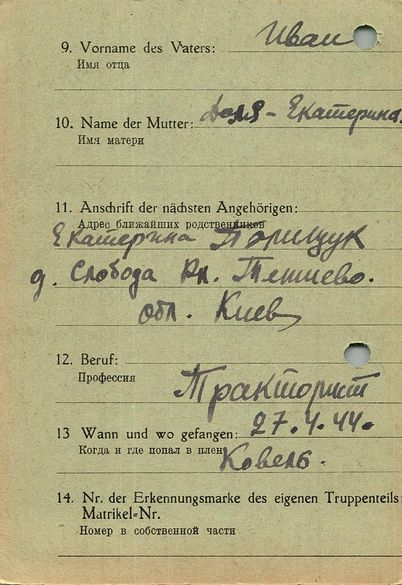 9. Vorname des Vaters: Иван
Имя отца
10. Name der Mutter: Доля - Екатерина.
Имя матери
11. Anschrift der nächsten Angehörigen:
Адрес ближайших родственников
Екатерина Порищук
д. Слобода Рн. Тетиево.
обл. Киев
12. Beruf:
Профессия
Тракторист
13 Wann und wo gefangen: 27.4.44.
Когда и где попал в плен
Ковель.
14. Nr. der Erkennungsmarke des eigenen Truppenteils:
Matrikel-Nr.
Номер в собственной части